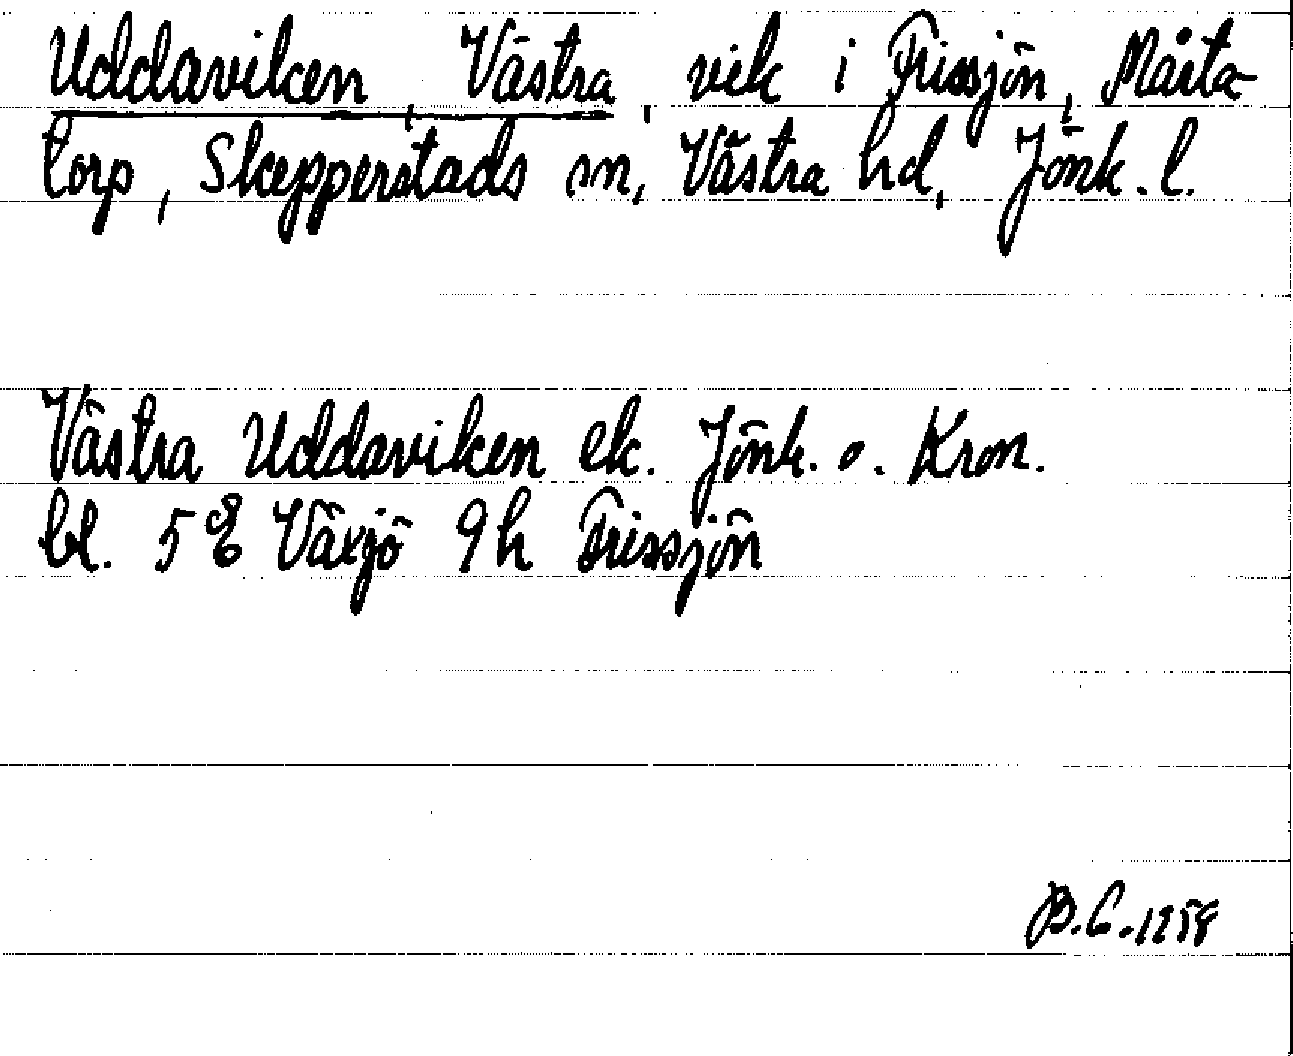 Uddaviken, Västra, vik i Frissjön, Mårta-
torp, Skepperstads sn, Västra hd, Jönk. l.
Västra Uddaviken ek. Jönk. o. Kron.
bl. 5 E Växjö 9h Frissjön